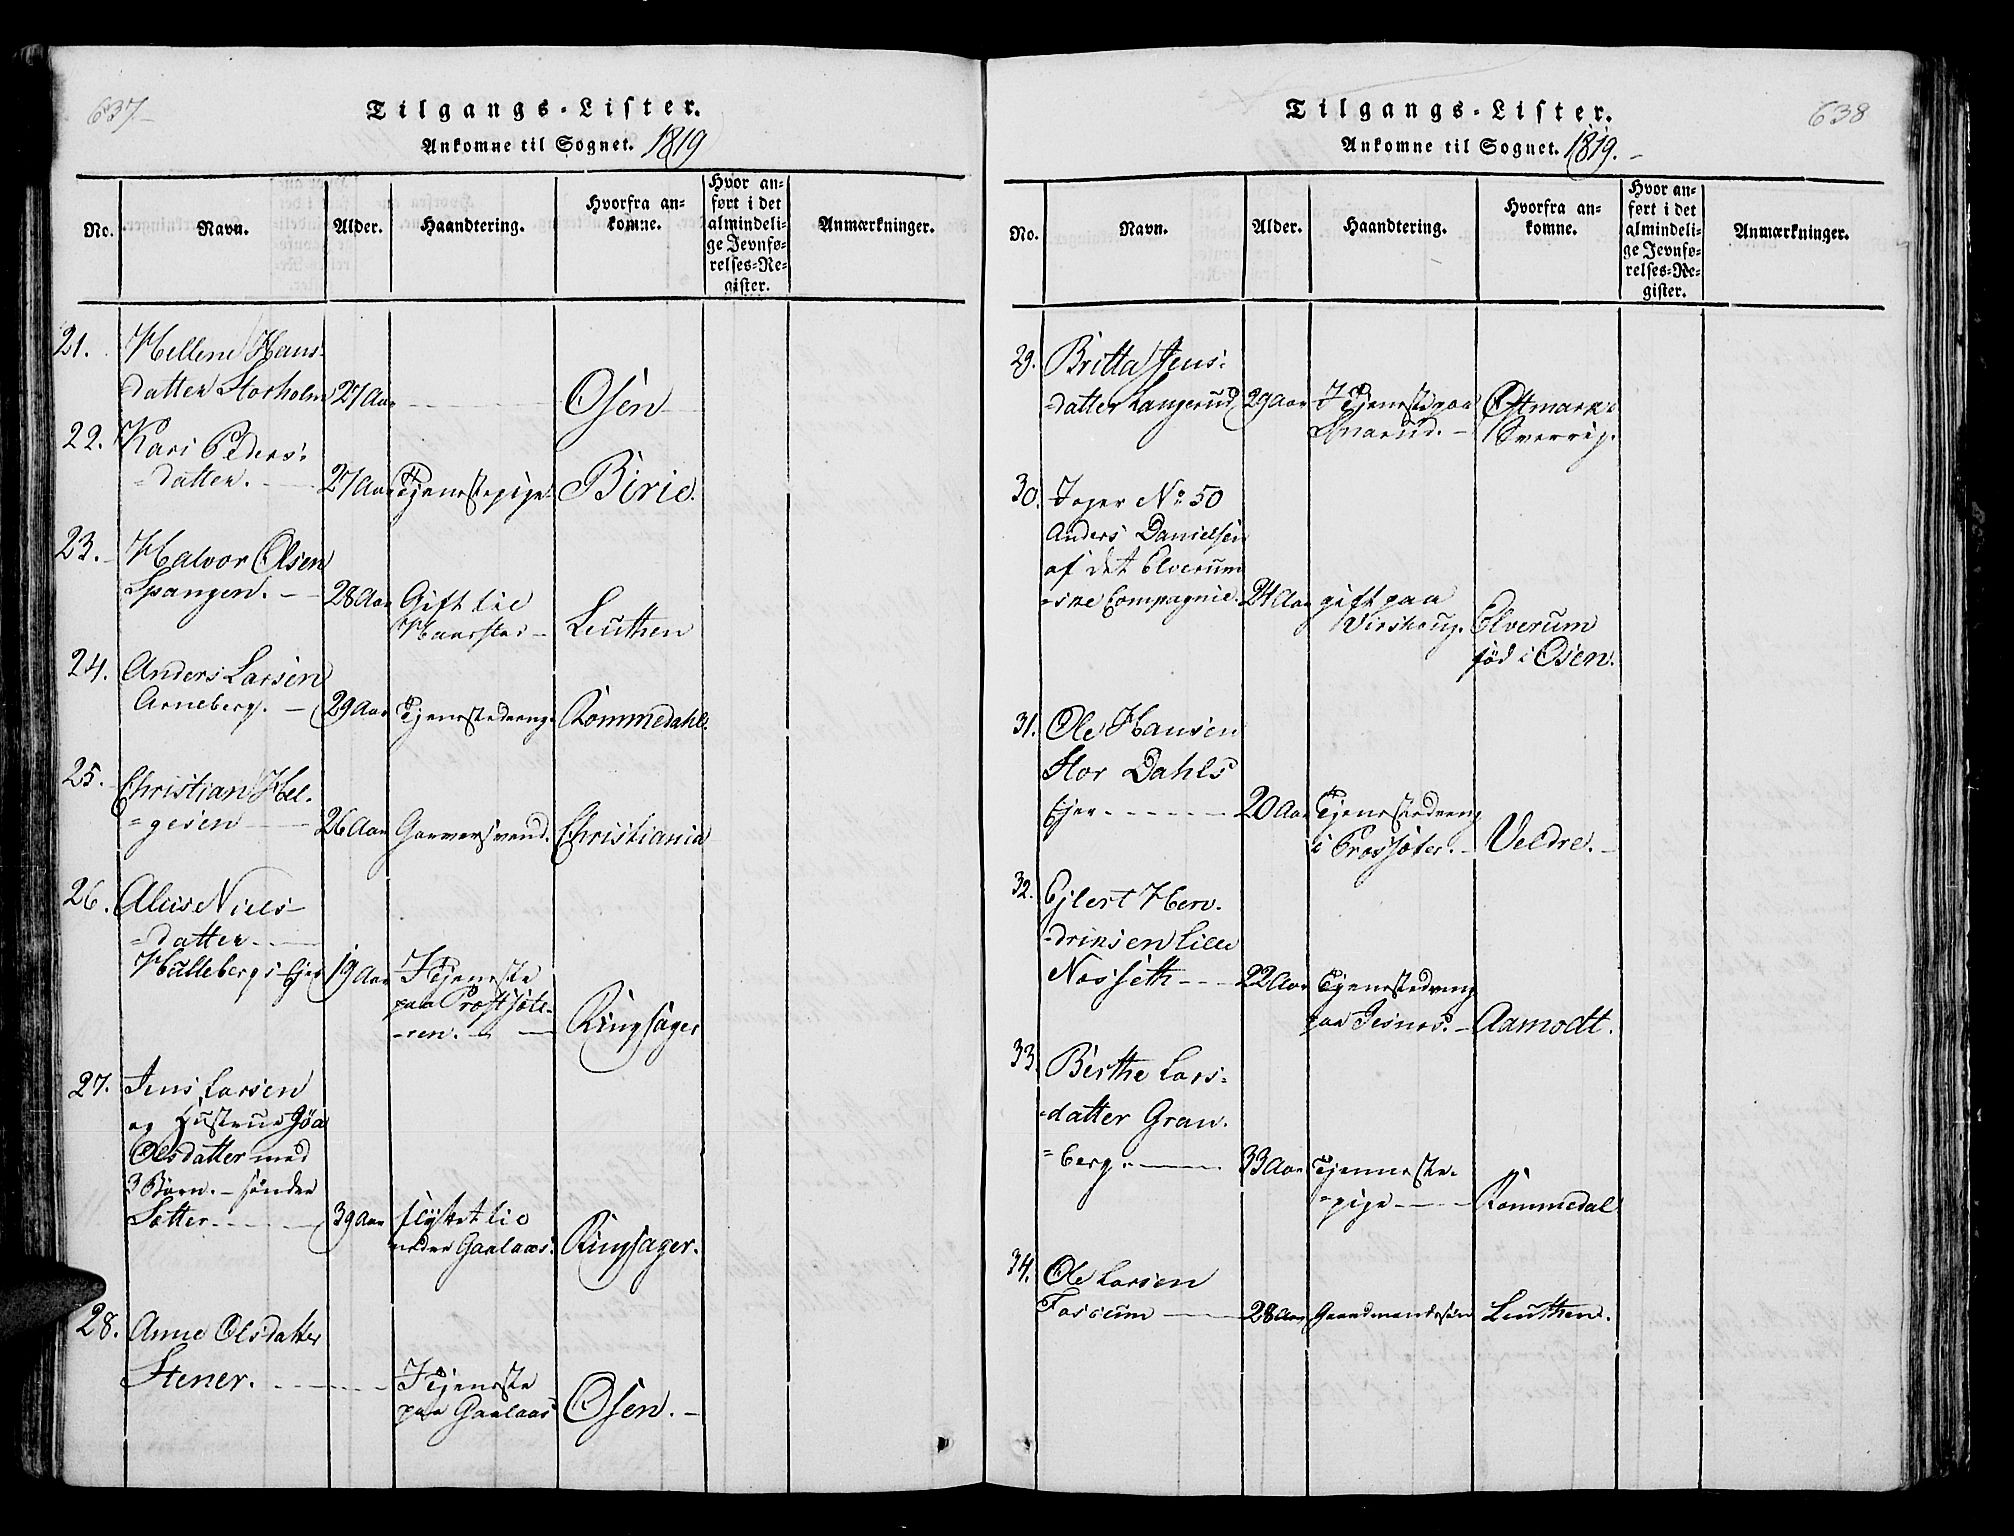 637
Tilgangs-Lister.
Ankomne til Sognet. 1819
No.
Navn.
Alder.
Haandtering.
Hvorfra an-
komne.
Hvor an-
ført i det
almindeli-
ge Jevnfø-
relses-Re-
gister.
Anmærkninger.
21. Hellene Hans-
datter Storholm 27 Aar Osen
22. Kari Peders-
=datter. 27 Aar Tjenestepige Birie.
23. Halvor Olsen
Spangen. 28 Aar Gift til
Leuthen
24. Anders Larsen
Arneberg. 29 Aar Tjenestedreng. Rommedahl.
25. Christian Hel-
=gesen 26 Aar Garversvend. Christiania
26. Niels-
=datter
Ejer 19 Aar I Tjeneste
paa Præstsæte-
=ren. Ringsager
27. Jens Larsen
og Hustrue Göa
Olsdatter med
3 Börn. - sönder
Sætter 39 Aar flyttet til
under Gaalaas. Ringsager.
28. Anne Olsdatter
Stener. I Tjeneste
paa Gaalaas Osen.
638
Tilgangs-Lister.
Ankomne til Sognet. 1819.
No.
Navn.
Alder.
Haandtering.
Hvorfra an-
komne.
Hvor an-
ført i det
almindeli-
ge Jevnfø-
relses-Re-
gister.
Anmærkninger.
29. Britta Jens-
=datter Langerud 29 Aar I Tjeneste paa Østmark
Snarud. Sverrig.
30. Jæger No 50
Anders Danielsen
af det Elverum
=ske Compagnie. 24 Aar gift paa
Elverum
föd i Osen.
31. Ole Hansen
Stor Dahls
Ejer 20 Aar Tjenestedreng
i Præssæter. Veldre.
32. Ejlert Hen-
=driksen Lille
Nosseth 22 Aar Tjenestedreng
paa Jesnes. Aamodt.
33. Berthe Lars-
=datter Gran-
=berg. 33 Aar Tjeneste-
=pige Rommedal
34. Ole Larsen
28 Aar Gaardmandssön Leuthen.